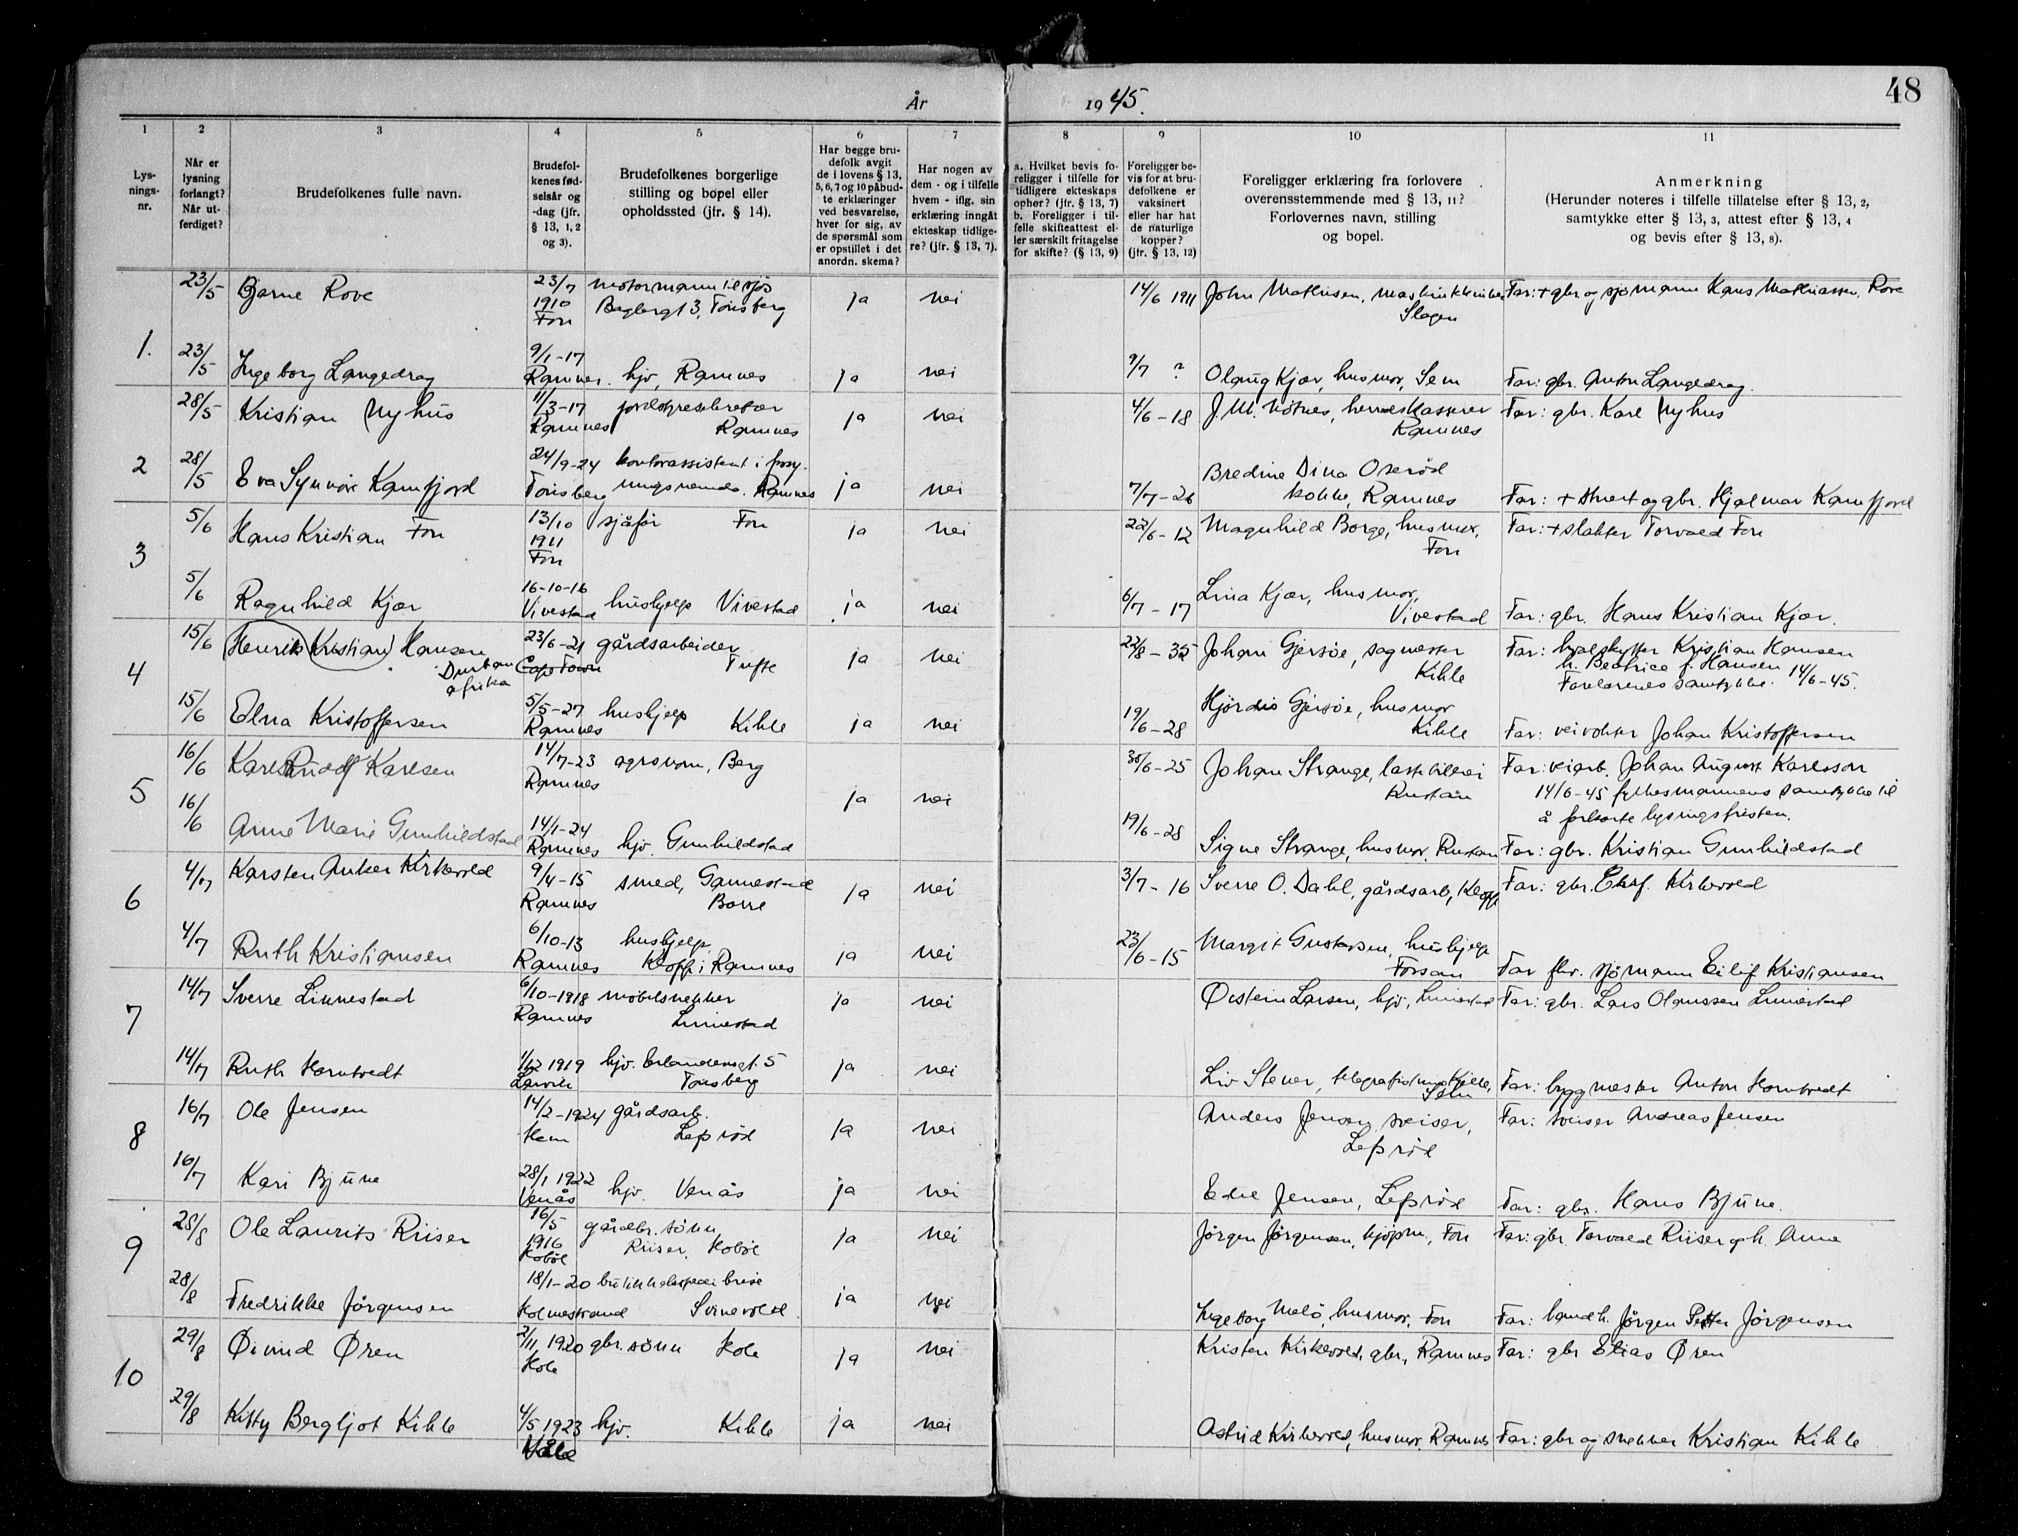 48
År 1945.
1 2 3 4 5 6 7 8 9 10 11
Lys-
nings-
nr.
Når er
lysning
forlangt?
Når ut-
ferdiget?
Brudefolkenes fulle navn.
Brudefol-
kenes fød-
selsår og
-dag (jfr.
§ 13, 1, 2
og 3).
Brudefolkenes borgerlige
stilling og bopel eller
opholdssted (jfr. § 14).
Har begge bru-
defolk avgit
de i lovens § 13,
5, 6, 7 og 10 påbud-
te erklæringer
ved besvarelse,
hver for sig, av
de spørsmål som
er opstillet i det
anordn. skema?
Har nogen av
dem - og i tilfelle
hvem - iflg. sin
erklæring inngått
ekteskap tidlige-
re? (jfr. § 13, 7).
a. Hvilket bevis fo-
religger i tilfelle for
tidligere ekteskaps
ophør? (jfr. § 13, 7)
b. Foreligger i til-
felle skifteattest el-
ler særskilt fritagelse
for skifte? (§ 13, 9)
Foreligger be-
vis for at bru-
defolkene er
vaksinert
eller har hat
de naturlige
kopper?
(jfr. § 13, 12)
Foreligger erklæring fra forlovere
overensstemmende med § 13, 11?
Forlovernes navn, stilling
og bopel.
Anmerkning
(Herunder noteres i tilfelle tillatelse efter § 13, 2,
samtykke efter § 13, 3, attest efter § 13, 4
og bevis efter § 13, 8).
1.
23/5 Bjarne Rove 23/7 1910 Fon motormann til sjøs Tønsberg ja nei 14/6 1911 John Mathisen, Slagen Far: + gbr og sjømann Hans Mathiassen Rove
23/5 Ingeborg Langedrag 9/1-17 Ramnes. hjv, Ramnes ja nei 9/7 ? Olaug Kjær, husmor, Sem Far: gbr. Anton Langedrag.
2
28/5 Kristian Nyhus 11/3-17 Ramnes Ramnes ja nei 4/6-18 J.M. herredskasserer Ramnes Far: gbr. Karl Nyhus
28/5 Eva Synnøve Kamfjord 24/9-24 Tønsberg kontorassistent i forsy-
ningsnemda. Ramnes ja nei 7/7-26 Bredine Dina Oserød
kokke, Ramnes Far: + gbr. Hjalmar Kamfjord
3
5/6 Hans Kristian Fon 13/10 1911 Fon sjåfør Fon ja nei 22/6-12 Magnhild Borge, husmor, Fon Far: + slakter Torvald Fon
5/6 Ragnhild Kjær 16-10-16 Vivestad hushjelp Vivestad ja nei 6/7-17 Lina Kjær, husmor, Vivestad Far: gbr. Hans Kristian Kjær.
4
15/6 Henrik (Kristian) Hansen 23/6-21 Cape Town Durban
Afrika gårdsarbeider Tufte ja nei 22/8-35 Johan Gjersøe, sagmester Kihle Far: hvalskytter Kristian Hansen
h. Beatrice f. Hansen
Foreldrenes samtykke 14/6-45.
15/6 Elna Kristoffersen 5/5-27 Ramnes hushjelp Kihle ja nei 19/6-28 Hjørdis Gjersøe, husmor Kihle Far: veivokter Johan Kristoffersen
5
16/6 Karl Rudolf Karlsen 14/7-23 Ramnes agronom, Berg ja nei 30/6-25 Johan Strange, lastebileier Rustan Far: veiarb. Johan August Karlsson
14/6-45 fylkesmannens samtykke til
å forkorte lysningsfristen.
16/6 Anne Marie Gunhildstad 14/1-24 Ramnes hjv. Gunhildstad 19/6-28 Signe Strange, husmor. Rustan Far: gbr. Kristian Gunhildstad
6
4/7 Karsten Anker Kirkevold 9/4-15 Ramnes smed, Gannestad Borre ja nei 3/7-16 Sverre O. Dahl, gårdsarb, Klopp Far: gbr. Kirkevold
4/7 Ruth Kristiansen 6/10-13 Ramnes hushjelp. Klopp i Ramnes ja nei 23/6-15 Margit Gustavsen, hushjelp Forsan Far fhv. sjømann Eilif Kristiansen
7
14/7 Sverre Linnestad 6/10-1918 Ramnes møbelsnekker Linnestad ja nei Øistein Larsen, hjv, Linnestad Far: gbr. Lars Olaussen Linnestad
14/7 Ruth Horntvedt 1/12 1919 Larvik hjv. Erlandsensgt. 5 Tønsberg ja nei Liv Stener, Sem Far: byggmester Anton Horntvedt
8
16/7 Ole Jensen 14/2-1924 Hem gårdsarb. Lefsrød ja nei Anders Jensen sveiser, Lefsrød Far: sveiser Andreas Jensen
16/7 Kari Bjune 28/1 1922 Venås hjv. Venås ja nei Edel Jensen, Lefsrød Far: gbr. Hans Bjune.
9
28/8 Ole Laurits Riiser 16/5 1916 Hobøl gårdbr. sønn Riiser, Hobøl ja nei Jørgen Jørgensen, kjøpm, Fon Far: gbr. Torvald Riiser og h. Anna
28/8 Fredrikke Jørgensen 18/1-20 Holmestrand butikkekspeditrise Svinevold ja nei Ingeborg Melø, husmor, Fon Far: handh. Jørgen Petter Jørgensen
10
29/8 Øivind Øren 2/11 1920 Hole gbr. sønn Hole ja nei Kristen Kirkevold, gbr, Ramnes Far: gbr Elias Øren
29/8 Kitty Bergljot Kihle 4/5 1923 Våle hjv. Kihle ja nei Astrid Kirkevold, husmor, Ramnes Far: gbr og snekker Kristian Kihle